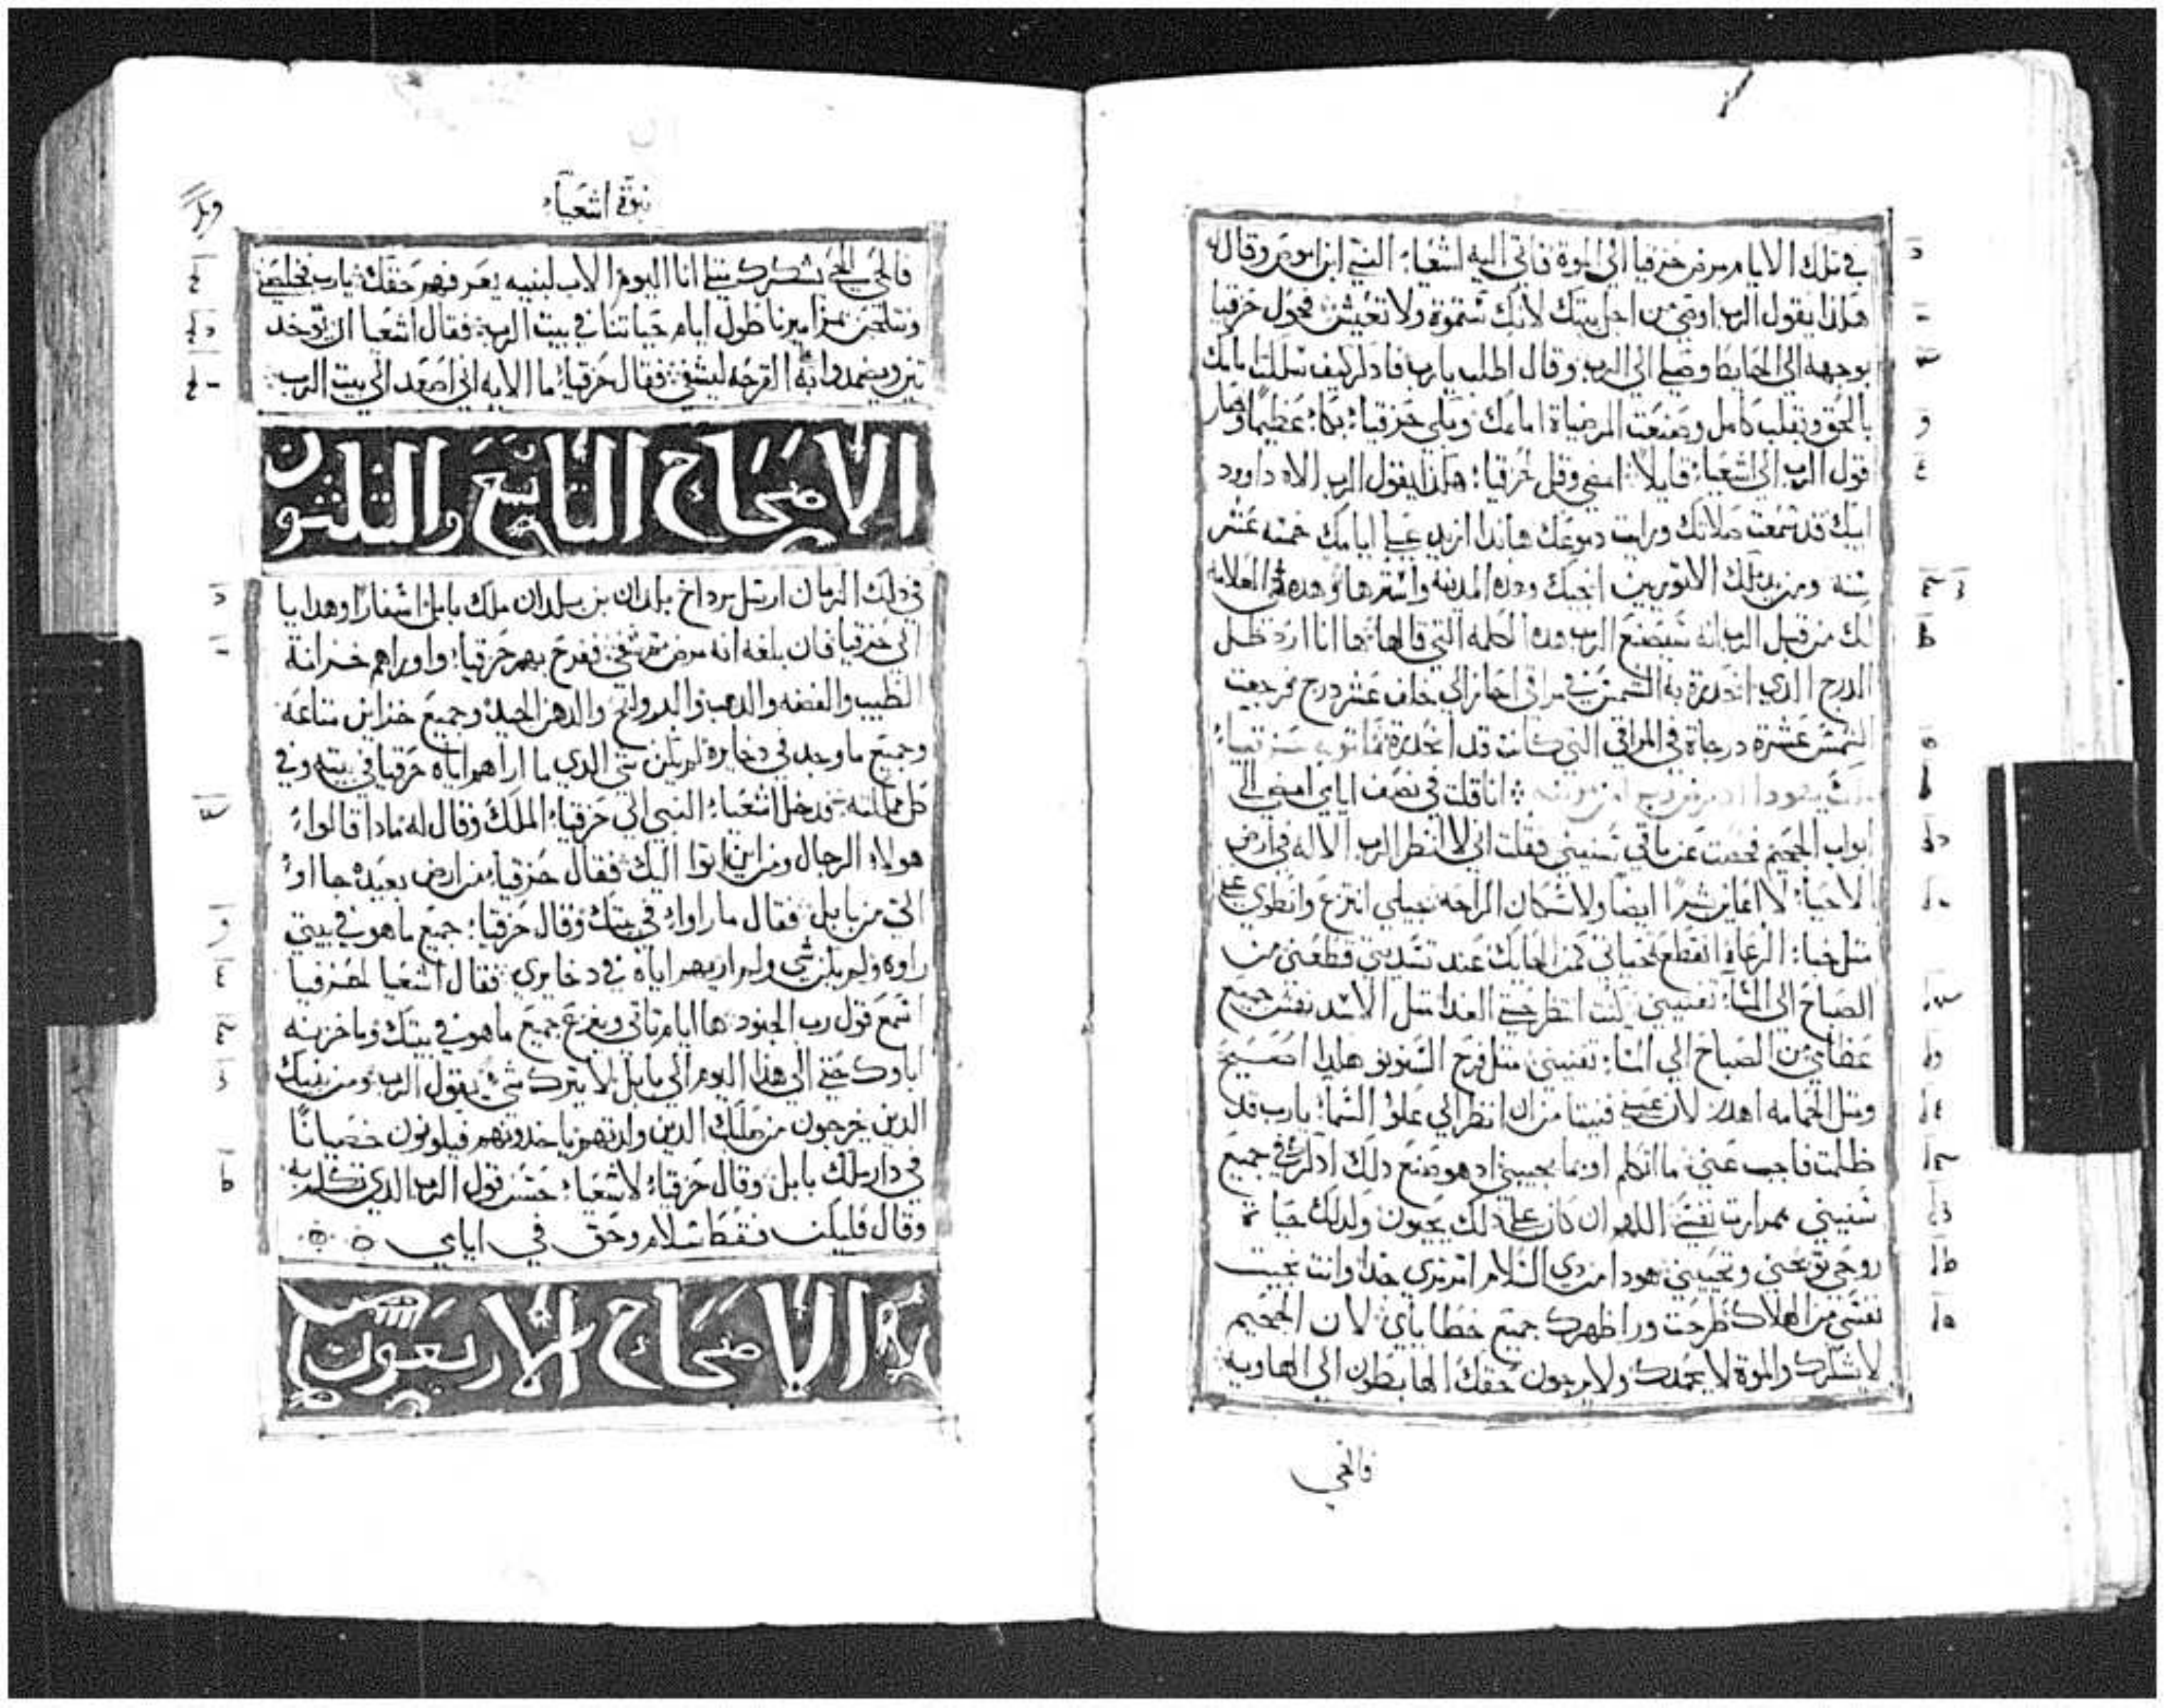 في تلك الايام مرض حزقيا الي الموة فاتي اليه اشعياء النبي ابن اموص وقال له
هاكذا يقول الرب اوصي من اجل بيتك لانك ستموة ولا تعيش فحول حزقيا
بوجهه الي الحايط وصلي الي الرب وقال اطلب يارب فادكر كيف سلكت امامك
بالحق وبقلب كامل وصنعت المرضياة امامك وبكي حزقياء بكاء عظيما وصار
قول الرب الي اشعياء قايلا امضي وقل لحزقياء هاكذا يقول الرب الاه داوود
ابيك قد سمعت صلاتك ورايت دموعك هاندا ازيد علي ايامك خمسه عشر
سنه ومن يد ملك الاتوريين انجيك وهده المدينه واسترها وهده هي العلامه
لك من قبل الرب انه سيصنع الرب هده الكلمه التي قالها ها انا ارد ظل
الدرج الدي انحدرة به الشمس في مراقي احاز الي خلف عشر درج فرجعت
الشمس عشرة درجاة في المراقي التي كانت قد انحدرة
انا قلت في نصف ايامي امضي الي
ابواب الجحيم فحصت عن باقي سنيني فقلت اني لا انظر الرب الالاه في ارض
الاحياء لا اعاين بشرا ايضا ولا سكان الراحه جيلي انتزع وانطوي عني
مثل خباء الرعاة انقطع حياتي كمن الحايك عند تسديتي قطعني من
الصباح الي المساء تفنيني كنت انتظر حتي الغدا مثل الاسد نفسه جميع
عظامي من الصباح الي المساء تفنيني مثل فرخ السنونو هاكذا اصيح
ومثل الحمامه اهدر لان عيني فنيتا من ان انظر الي علو السماء يارب قد
ظلمت فاجب عني ما اتكلم او بما يجيبني اد هو صنع دلك ادكر في جميع
سنيني بمرارت نفسي اللهم ان كان علي دلك يحيون ولدلك حياة
روحي توبخني وتحييني هودا مردي السلام مرمري جدا وانت نجيت
نفسي من الهلاك طرحت ورا ظهرك جميع خطاياي لان الجحيم
لا تشكرك والموة لا تحمدك ولا يرجون حقك الهابطون الي الهاويه
فالحي
نبوة اشعياء
فالحي الحي تشكرك مثلي انا اليوم الاب لبنيه يعرفهم حقك يارب تخلصني
ونتلحن مزاميرنا طول ايام حياتنا في بيت الرب فقال اشعيا ان توخد
تين ويضمدوا به القرحه ليشفي فقال حزقياء ما الايه اني اصعد الي بيت الرب
الاصحاح التاسع والثلثون
في دلك الزمان ارسل مرداخ بلدان بن بلدان ملك بابل اسفارا وهدايا
الي حزقيا فان بلغه انه مرض ثم شفي ففرح بهم حزقياء واوراهم خزانة
الطيب والفضه والدهب والدهن الجيد وجميع خزاين متاعه
وجميع ما وجد في دخايره لم يكن شي الدي ما اراهم اياه حزقيا في بيته وفي
كل مملكته فدخل اشعياء النبي الي حزقياء الملك وقال له مادا قالواء
هولاء الرجال ومن اين اتوا اليك فقال حزقياء من ارض بعيده جااوا
الي من بابل فقال ما راواء في بيتك وقال حزقياء جميع ما هو في بيتي
راوه ولم يكن شي ولم اريهم اياه في دخايري فقال اشعيا لحزقيا
اسمع قول رب الجنود ها ايام تاتي وينزع جميع ما هو في بيتك وما خزنه
اباوك حتي الي هدا اليوم الي بابل لا يترك شي يقول الرب ومن بنيك
الدين يخرجون من صلبك الدين ولدتهم ياخدونهم فيكونون خصيانا
في دار ملك بابل وقال حزقياء لاشعياء حسن قول الرب الدي تكلم به
وقال فليكن فقط سلام وحق في ايامي
الاصحاح الاربعون